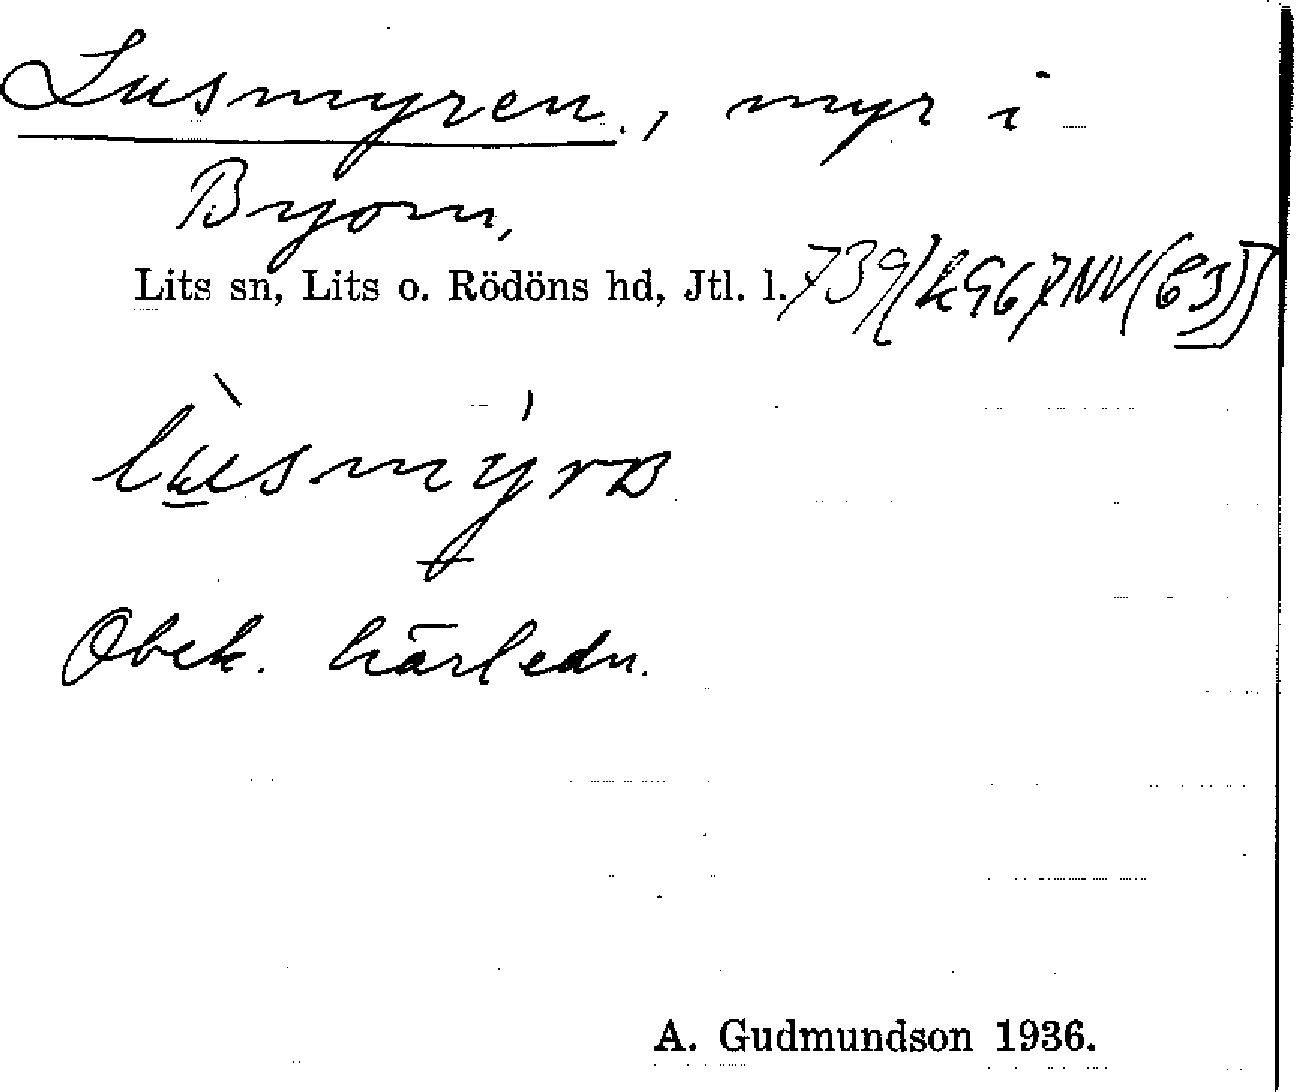 Lusmyren, myr i
Byom,
Lits sn, Lits o. Rödöns hd, Jtl. l.
lùsmýrɒ
Obek. härledn.
A. Gudmundson 1936.